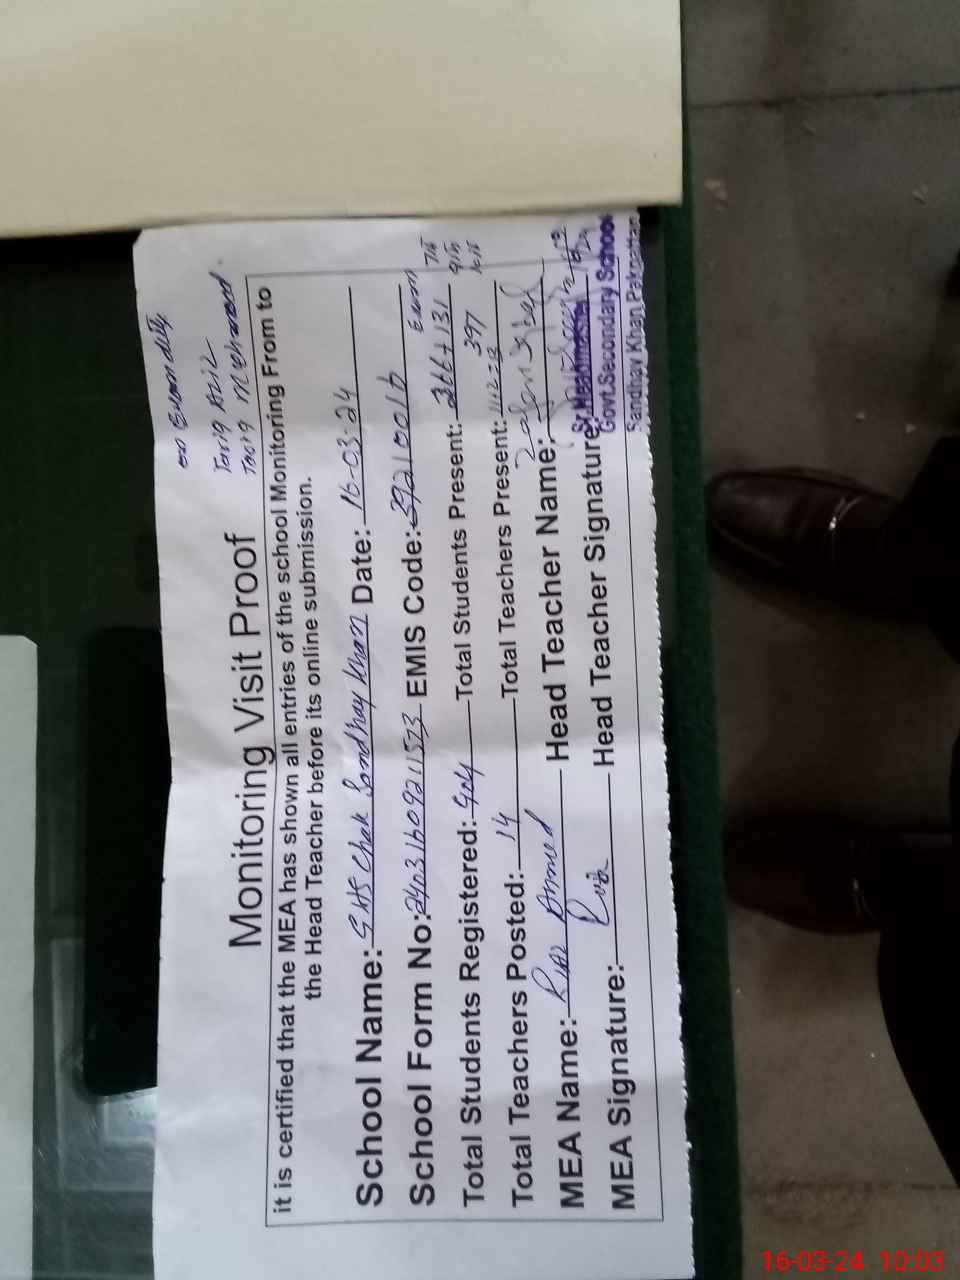 on Exam duty
Tariq Aziz
Tariq Mehmood
Monitoring Visit Proof
it is certified that the MEA has shown all entries of the school Monitoring From to
the Head Teacher before its online submission.
School Name: GHS Chak Sandhay Khan Date: 16-03-24
School Form No: 24031609211573 EMIS Code: 39210016
Exam 7th
9th
10th
Total Students Registered: 404 Total Students Present: 266+131
397
Total Teachers Posted: 14 Total Teachers Present: 11+2=13
MEA Name: Riaz Ahmed Head Teacher Name:
MEA Signature: Riaz Head Teacher Signature:
Sr. Headmaster
Govt.Secondary School
Sandhay Khan Pakpattan
16-03-24 10:03